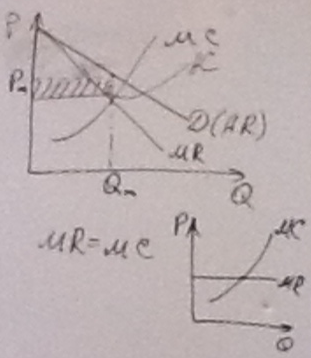 P
MC
Pm
D(AR)
MR
Qm
Q
MR=MC
P
MC
MR
Q